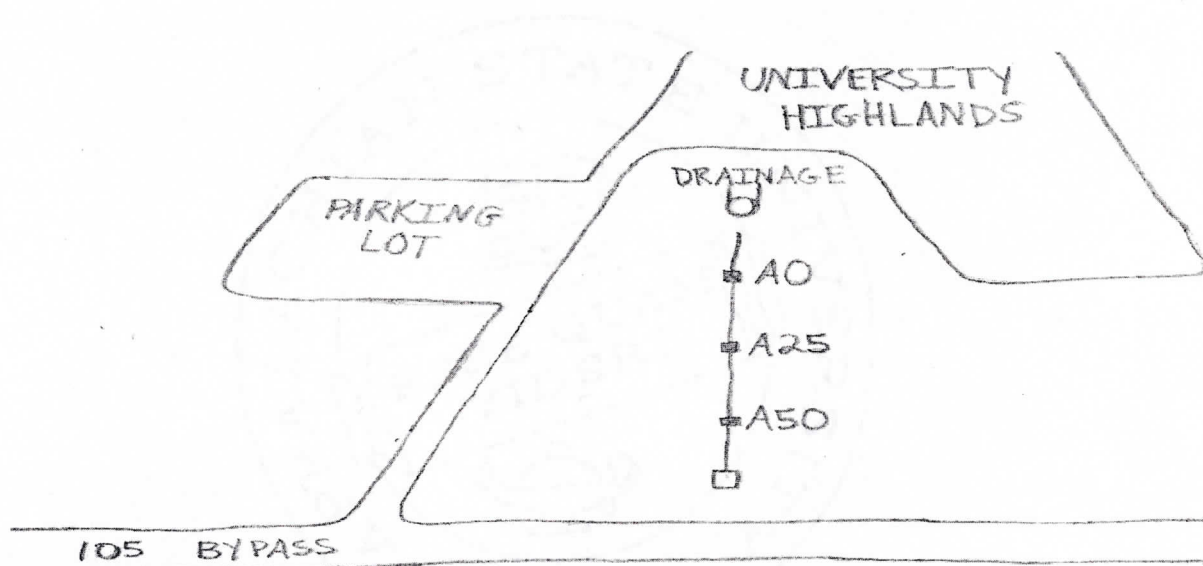 UNIVERSITY
HIGHLANDS
DRAINAGE
PARKING
LOT
A0
A25
A50
105 BYPASS